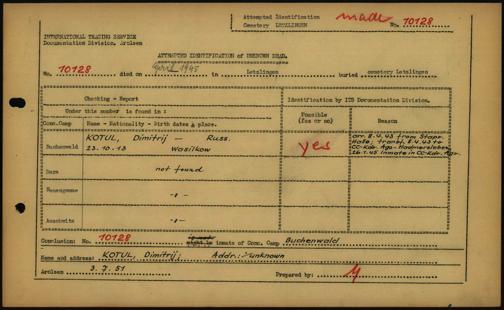 Attempted Identification made
Cemetery LETZLINGEN No. 10128
INTERNATIONAL TRACING SERVICE
Documentation Division, Arolsen
ATTEMPTED IDENTIFICATION of UNKNOWN DEAD.
No. 10128 died on April 1945 in Letzlingen buried cemetery Letzlingen
Checking - Report
Identification by ITS Documentation Division.
Under this number is found in:
Possible (yes or no)
Reason
Conc.Camp Name - Nationality - Birth dates & place.
Buchenwald
KOTUL, Dimitrij — Russ.
23.10.13 Wasilkow
yes
arr. 8.4.43 from
Halle; transf. 8.4.43 to
CC-Kdo. Aga-Hadmersleben
26.1.45 inmate in CC-Kdo. Aga.
Dara not found
Neuengamme -"-
Auschwitz -"-
Conclusion: No. 10128 might be inmate of Conc. Camp Buchenwald
Name and address: KOTUL, Dimitrij; Addr.: unknown
Arolsen 3.7.51 Prepared by: